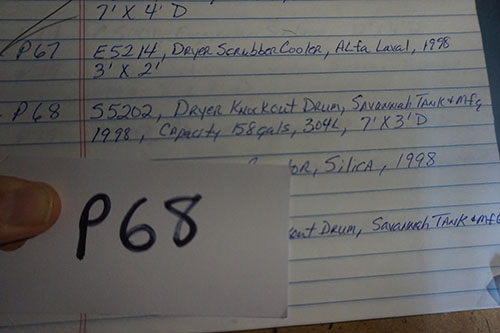 7' X 4' D
P67 E5214, Dryer Scrubber Cooler, Alfa Laval, 1998
3' X 2'
P68 S5202, Dryer Knockout Drum, Savannah Tank & Mfg
1998, Capacity 158gals, 304L, 7' X 3' D
Silica, 1998
Drum, Savannah Tank & Mfg
P68